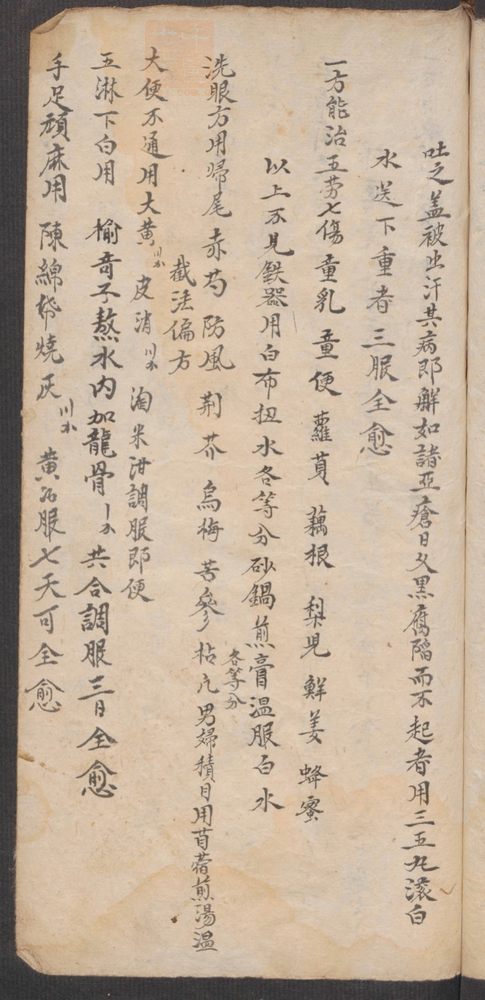 吐之盖被出汗其病即解如諸亞瘡日久黑腐陷而不起者用三五丸滚白
水送下重者三服全愈
一方能治五劳七傷 童乳 童便 蘿蔔 藕根 梨児 鮮姜 蜂蜜
以上不見鉄器用白布扭水各等分砂鍋煎膏温服白水
洗眼方用歸尾 赤芍 防風 荆芥 烏梅 苦參 枯凡 各等分 男婦積目用苜蓿煎湯温
截法偏方
大便不通用大黄 皮消 淘米泔調服即便
五淋下白用 榆 子熬水内加龍骨 共合調服三日全愈
手足頑麻用 陳綿 燒灰 黄 服七天可全愈